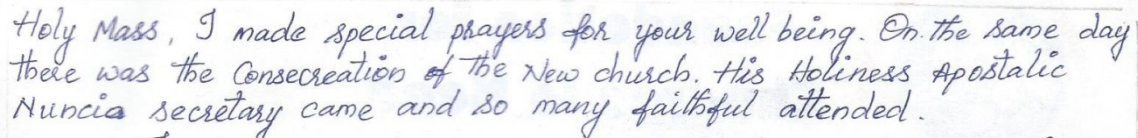 Holy Mass, I made special prayers for your well being. On the same day
there was the Consecreation of the New church. His Holiness Apostalic
Nuncia secretary came and so many faithful attended.